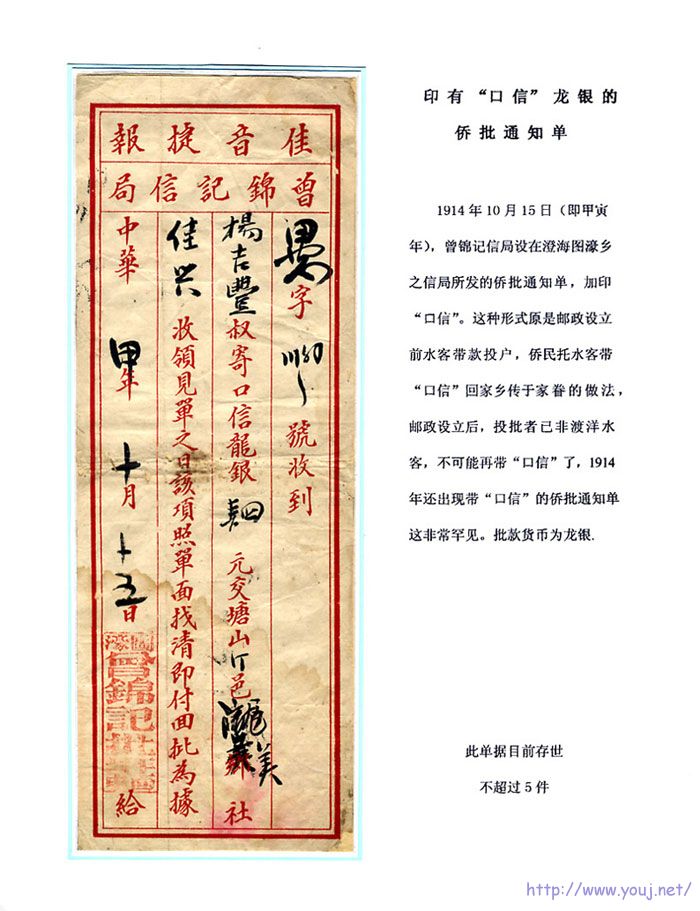 佳音捷報
曾錦記信局
字 號收到
楊吉豐叔寄口信龍銀 元交塘山 邑 美 社
佳興收領見單之日該項照單面找清即付回批為據
中華甲年十月十五日 給
曾錦記
印有“口信”龙银的
侨批通知单
1914年10月15日(即甲寅
年),曾锦记信局设在澄海图濠乡
之信局所发的侨批通知单,加印
“口信”。这种形式原是邮政设立
前水客带款投户,侨民托水客带
“口信”回家乡传于家眷的做法,
邮政设立后,投批者已非渡洋水
客,不可能再带“口信”了,1914
年还出现带“口信”的侨批通知单
这非常罕见。批款货币为龙银.
此单据目前存世
不超过5件
http://www.youj.net/